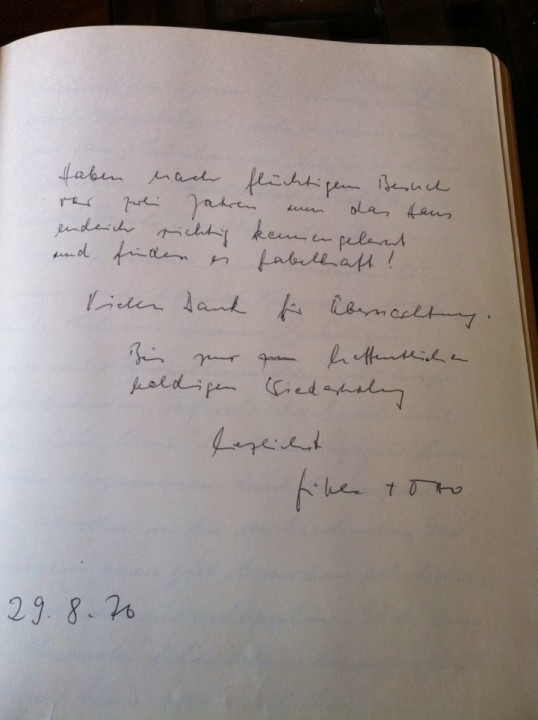 Haben nach flüchtigem Besuch
vor zwei Jahren nun das Haus
endlich richtig kennengelernt
und finden es fabelhaft!
Vielen Dank für Übernachtung.
Bis zur hoffentlichen
baldigen Wiederholung
herzlichst
+ Otto
29.8.70